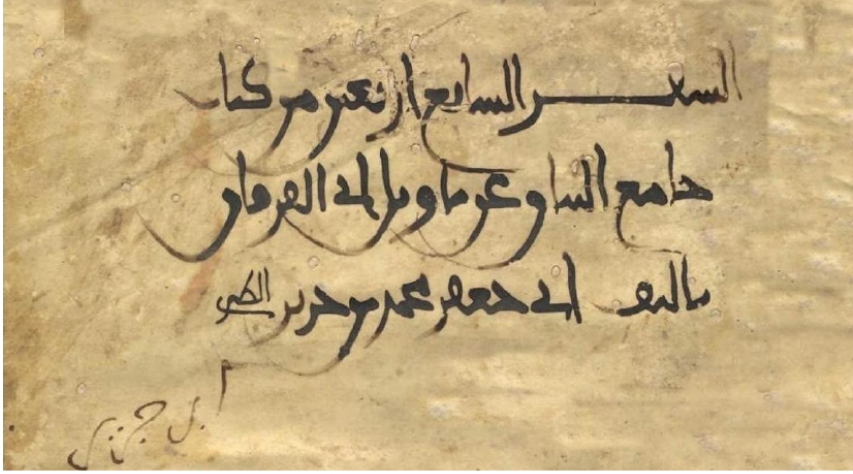 السفر السابع اربعين من كتاب
جامع البيان عن تاويل اي الفرقان
تاليف ابي جعفر محمد بن جرير الطبري
ابن جرير